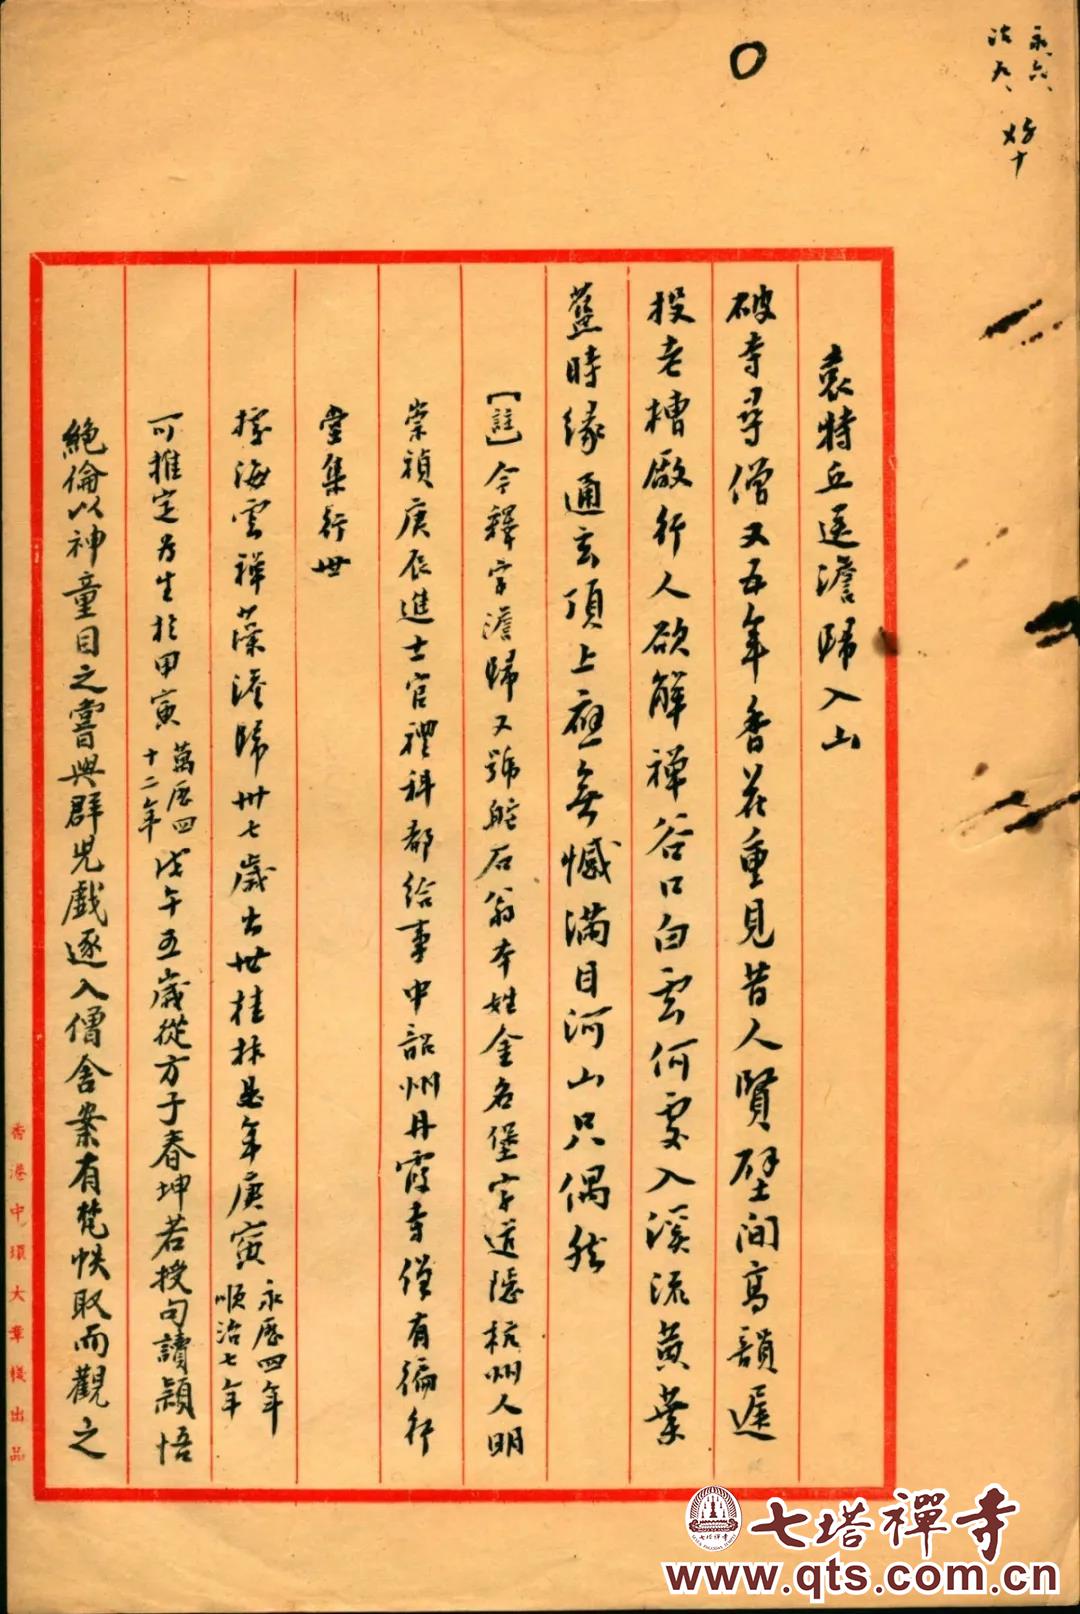 永六、
治九、
袁特丘送澹歸入山
破寺尋僧又五年香花重見昔人賢壁間高韻遲
投老槽廠行人欲解禪谷口白雲何處入溪流黃葉
蓋時緣通玄頂上應無憾滿目河山只偶然
［註］今釋字澹歸又號舵石翁本姓金名堡字道隱杭州人明
崇禎庚辰進士官禮科都給事中韶州丹霞寺僧有徧行
堂集行世
據海雲禪藻澹歸卅七歲出世桂林是年庚寅永歷四年
順治七年
可推定為生於甲寅萬歷四
十二年戊午五歲從方子春坤若授句讀穎悟
絕倫以神童目之嘗與群兒戲逐入僧舍案有梵帙取而觀之
香港中環大華棧出品
七塔禪寺
www.qts.com.cn